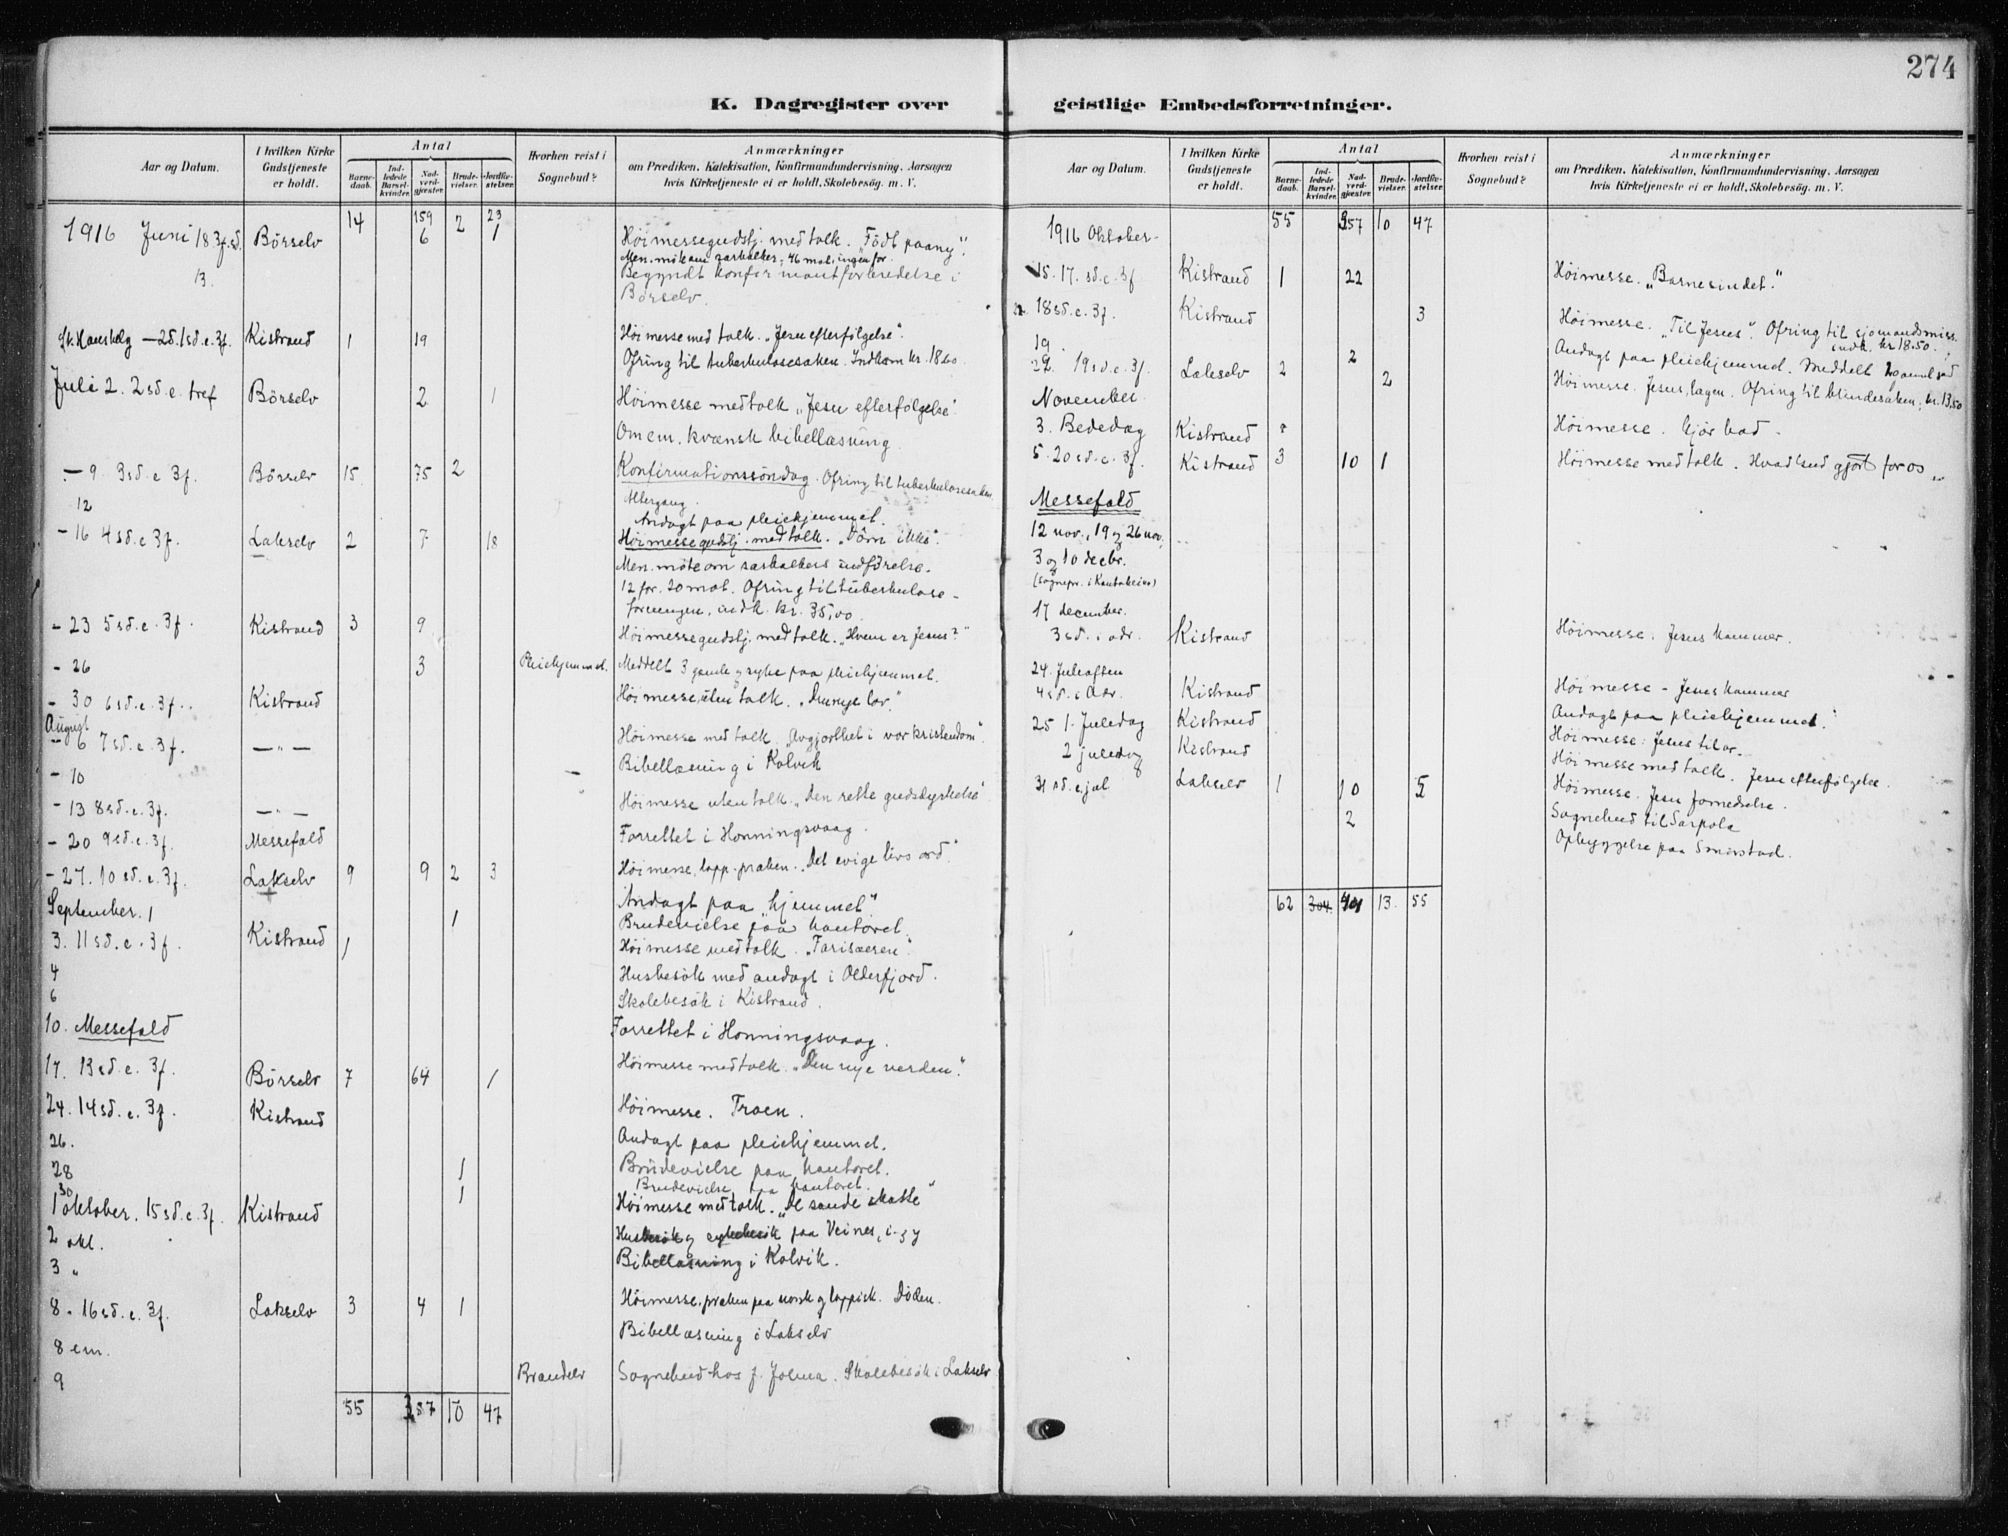 274
K. Dagregister over geistlige Embedsforretninger.
Aar og Datum.
I hvilken Kirke Gudstjeneste er holdt.
Antal
Barnedaab.
Indledede Barselkvinder.
Nadverdgjæster.
Brudevielser.
Jordfæstelser.
Hvorhen reist i Sognebud?
Anmærkninger
om Prædiken, Katekisation, Konfirmandundervisning, Aarsagen
hvis Kirketjeneste ei er holdt, Skolebesög. m. V.
14 159 2 23
1916 Juni 18. 3f. sd. Börselv 6 1 Höimessegudstj. med tolk. "Födt paany".
13. Begyndt konfirmantforberedelse i
Börselv.
St. Hanshelg - 25. 1 sd. e. 3f. Kistrand 1 19 Höimesse med tolk. "Jesu efterfölgelse".
Ofring til tuberkulosesaken. Indkom kr. 18.60.
Juli 2. 2 sd. e. tref Börselv 2 1 Höimesse med tolk "Jesu efterfölgelse".
Om em. kvænsk bibellæsning.
- 9. 3 sd. e. 3f. Börselv 15 75 2 Konfirmationssöndag. Ofring til tuberkulosesaken
Altergang.
12 Andagt paa pleiehjemmet.
- 16 4 sd. e. 3f. Lakselv 2 7 18 Höimessegudstj. med tolk. "Döm ikke".
Men. möte om særkalkers indförelse.
12 for. 20 mot. Ofring til tuberkulose-
foreningen, indk. kr. 35,00.
- 23 5 sd. e. 3f. Kistrand 3 9 Höimessegudstj. med tolk. "Hvem er Jesus?"
- 26 3 Pleiehjemmet. Meddelt 3 gamle og syke paa pleiehjemmet.
- 30 6 sd. e. 3f. Kistrand Höimesse uten tolk. "Den nye lov."
August
- 6 7 sd. e. 3f. — " — Höimesse med tolk "Avgjorthet i vor kristendom".
- 10 Bibellæsning i Kolvik
- 13 8 sd. e. 3f. — " — Höimesse uten tolk. "Den rette gudsdyrkelse"
- 20 9 sd. e. 3f. Messefald Forrettet i Honningsvaag.
- 27. 10 sd. e. 3f. Lakselv 9 9 2 3 Höimesse, lapp. præken. "Det evige livs ord".
September. 1 Andagt paa "hjemmet"
1 Brudevielse paa kontoret.
3. 11 sd. e. 3f. Kistrand 1 Höimesse med tolk. "Fariseeren".
4 Husbesök med andagt i Olderfjord.
6 Skolebesök i Kistrand.
10. Messefald Forrettet i Honningsvaag.
17. 13 sd. e. 3f. Börselv 7 64 1 Höimesse med tolk. "Den nye verden".
24. 14 sd. e. 3f. Kistrand Höimesse. Troen.
26. Andagt paa pleiehjemmet.
28 1 Brudevielse paa kontoret.
30 1 Brudevielse paa kontoret.
1 oktober. 15 sd. e. 3f. Kistrand Höimesse med tolk. "De sande skatte"
2 okt. Husbesök og sykebesök paa Veines,
3 " Bibellæsning i Kolvik.
8. 16 sd. e. 3f. Lakselv 3 4 1 Höimesse. præken paa norsk og lappisk. Döden.
8 em. Bibellæsning i Lakselv
9 Brandelv Sognebud hos Skolebesök i Lakselv
55 387 10 47
Aar og Datum.
I hvilken Kirke Gudstjeneste er holdt.
Antal
Barnedaab.
Indledede Barselkvinder.
Nadverdgjæster.
Brudevielser.
Jordfæstelser.
Hvorhen reist i Sognebud?
Anmærkninger
om Prædiken, Katekisation, Konfirmandundervisning, Aarsagen
hvis Kirketjeneste ei er holdt, Skolebesög. m. V.
55 357 10 47
1916 Oktober-
15. 17. sd. e. 3f Kistrand 1 22 Höimesse. "Barnesindet."
18 sd. e. 3f. Kistrand 3 Höimesse. "Til Jesus". Ofring til sjömandsmiss.
indk. kr 18.50.
19. 2 Andagt paa pleiehjemmet. Meddelt 2 gamle
29. 19 sd. e. 3f. Lakselv 2 2 Höimesse. Jesus, lægen. Ofring til blindesaken, kr. 13,50
November.
3. Bededag Kistrand Höimesse. Gjör bod.
5. 20 sd. e. 3f. Kistrand 3 10 1 Höimesse med tolk. Hvad Gud gjort for os
Messefald
12 nov., 19 og 26 nov.
3 og 10 decbr.
(sognepr. i Kautokeino)
17 december.
3 sd. i adv. Kistrand Höimesse. Jesus kommer.
24. Juleaften
4 sd. i Adv. Kistrand Höimesse - Jesus kommer
Andagt paa pleiehjemmet.
25 1. Juledag Kistrand Höimesse: Jesus til os.
2 juledag Kistrand Höimesse med tolk. Jesu efterfölgelse.
31 sd. e. jul Lakselv 1 10 5 Höimesse. Jesu fornedrelse.
2 Sognebud til Sarpola
Opbyggelse paa Smörstad.
62 304 401 13. 55